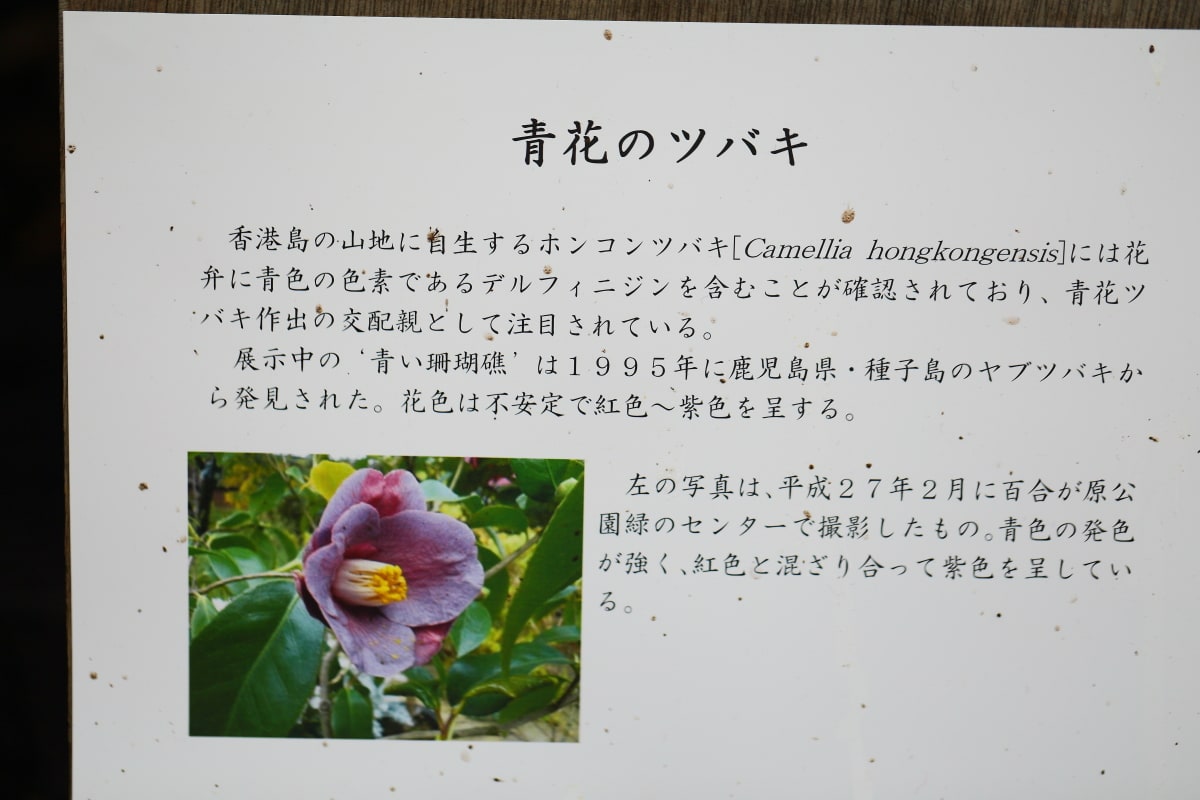 青花のツバキ
香港島の山地に自生するホンコンツバキ[Camellia hongkongensis]には花
弁に青色の色素であるデルフィニジンを含むことが確認されており、青花ツ
バキ作出の交配親として注目されている。
展示中の‘青い珊瑚礁’は１９９５年に鹿児島県・種子島のヤブツバキか
ら発見された。花色は不安定で紅色～紫色を呈する。
左の写真は、平成２７年２月に百合が原公
園緑のセンターで撮影したもの。青色の発色
が強く、紅色と混ざり合って紫色を呈してい
る。